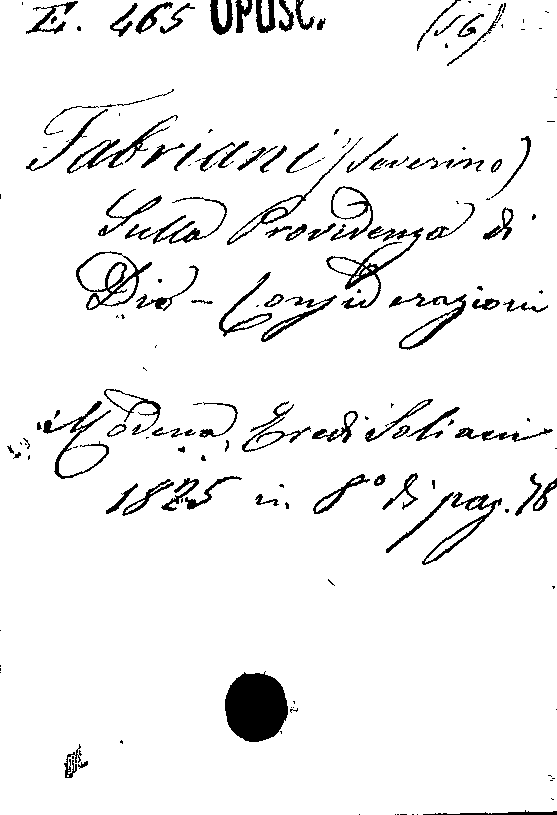 E. 465 OPUSC. (s. 6)
Fabriani (Severino)
Sulla Providenza di
Dio - Considerazioni
Modena, Eredi Soliani
1825 in 8° di pag. 78